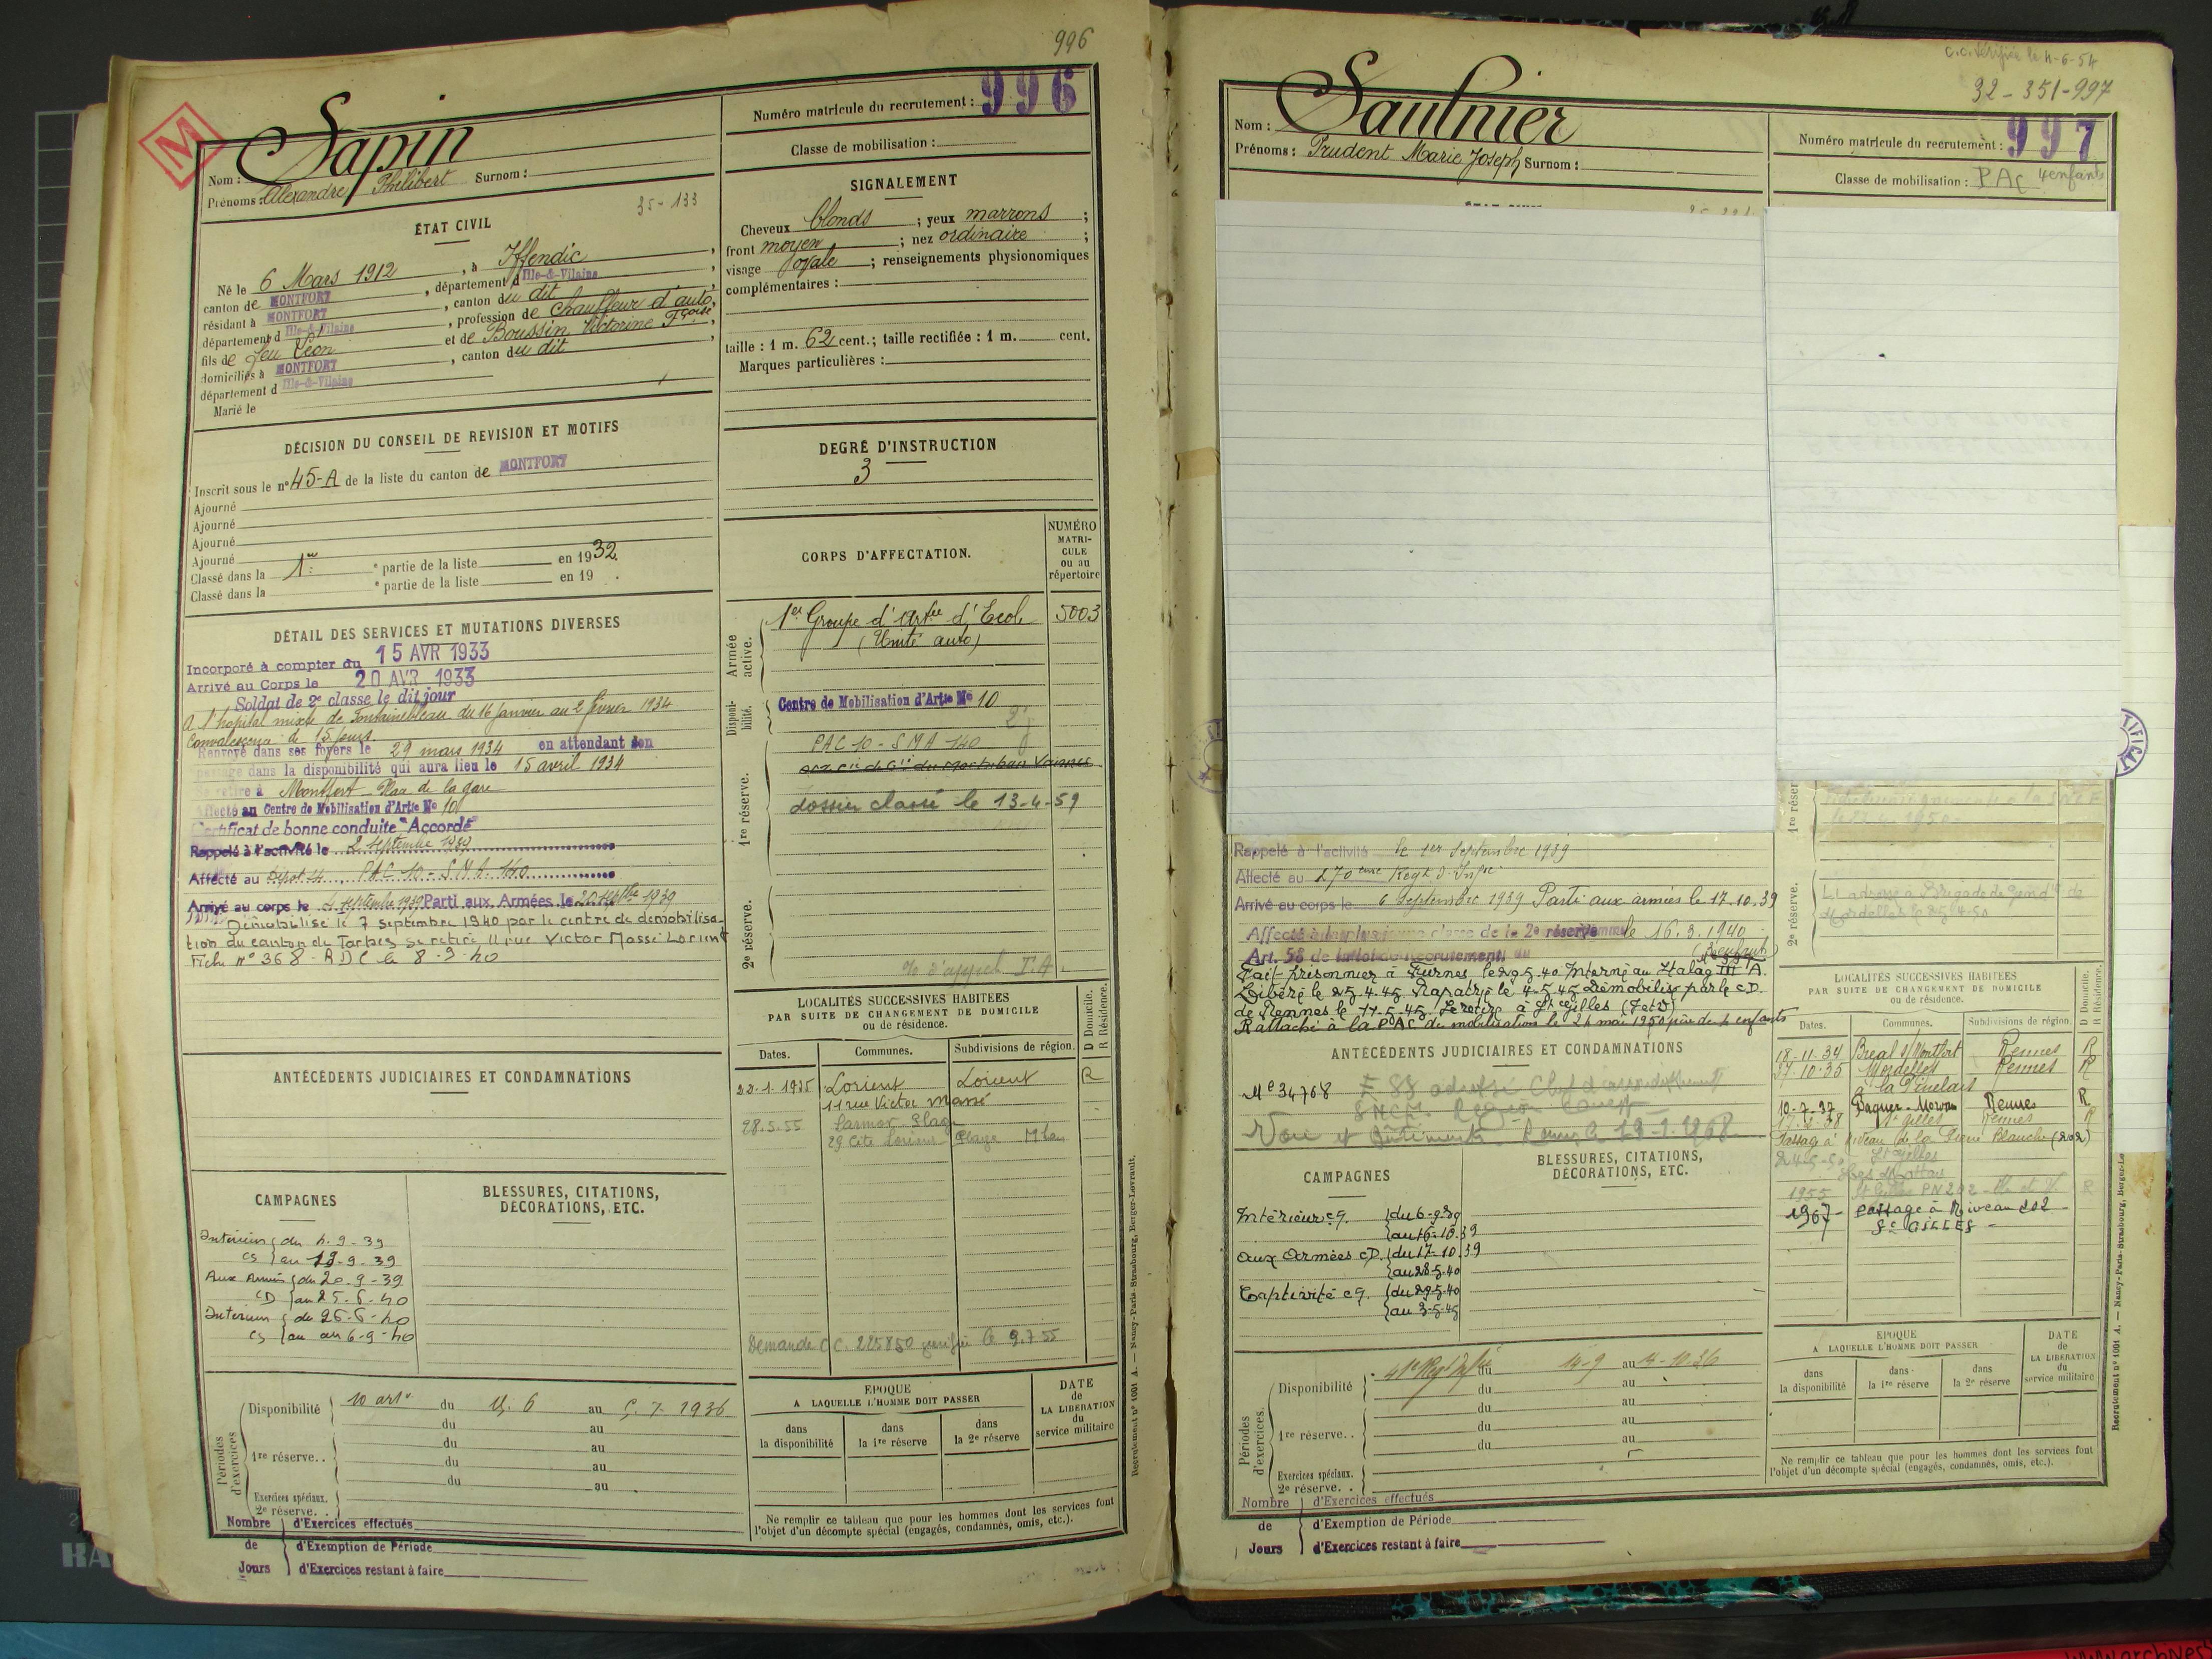 996
M
Sapin
Nom :
Prénoms : Alexandre Philibert Surnom :
35-133
ÉTAT CIVIL
Né le 6 Mars 1912, à Iffendic,
canton de MONTFORT, département d Ille-&-Vilaine,
résidant à MONTFORT, canton du dit,
département d Ille-&-Vilaine, profession de chauffeur d'auto,
fils de feu Léon et de Boussin Victorine Fçoise,
domiciliés à MONTFORT, canton du dit,
département d Ille-&-Vilaine
Marié le
DÉCISION DU CONSEIL DE REVISION ET MOTIFS
Inscrit sous le n° 45-A de la liste du canton de MONTFORT
Ajourné
Ajourné
Ajourné
Ajourné
Classé dans la 1re partie de la liste en 1932.
Classé dans la e partie de la liste en 19 .
DÉTAIL DES SERVICES ET MUTATIONS DIVERSES
Incorporé à compter du 15 AVR 1933
Arrivé au Corps le 20 AVR 1933
Soldat de 2e classe le dit jour
A l'hopital mixte de Fontainebleau du 16 janvier au 2 février 1934
Convalescence de 15 jours
Renvoyé dans ses foyers le 29 mars 1934 en attendant son
passage dans la disponibilité qui aura lieu le 15 avril 1934
Se retire à Montfort Place de la gare
Affecté au Centre de Mobilisation d'Artie No 10
Certificat de bonne conduite "Accordé"
Rappelé à l'activité le 2 septembre 1939
Affecté au Dépot , PAC 10 - SMA 140
Arrivé au corps le 4 septembre 1939 Parti aux Armées le 20 septbre 1939
Démobilisé le 7 septembre 1940 par le centre de demobilisa-
tion du canton de Tarbes se retire 11 rue Victor Massé Lorient
Fiche n° 368. RDC le 8-9-40
ANTÉCÉDENTS JUDICIAIRES ET CONDAMNATIONS
CAMPAGNES
BLESSURES, CITATIONS,
DÉCORATIONS, ETC.
Intérieur du 4-9-39
CS au 19-9-39
Aux Armées du 20-9-39
CD au 25-6-40
Intérieur du 26-6-40
CS au 6-9-40
Périodes d'exercices.
Disponibilité 10 artie du 15.6 au 5.7.1936
du au
du au
1re réserve.. du au
du au
Exercices spéciaux.
2e réserve. .
Nombre d'Exercices effectués
de d'Exemption de Période
Jours d'Exercices restant à faire
Numéro matricule du recrutement : 996
Classe de mobilisation :
SIGNALEMENT
Cheveux blonds ; yeux marrons ;
front moyen ; nez ordinaire ;
visage ovale ; renseignements physionomiques
complémentaires :
taille : 1 m. 62 cent. ; taille rectifiée : 1 m. cent.
Marques particulières :
DEGRÉ D'INSTRUCTION
3
CORPS D'AFFECTATION.
NUMÉRO
MATRI-
CULE
ou au
répertoire
Armée active.
1er Groupe d'Artie d'Ecole 5003
(Unité auto)
Disponi-
bilité.
Centre de Mobilisation d'Artie No 10
1re réserve.
PAC 10 - SMA 140
dossier classé le 13-4-59
2e réserve.
LOCALITÉS SUCCESSIVES HABITÉES
PAR SUITE DE CHANGEMENT DE DOMICILE
ou de résidence.
D Domicile.
R Résidence.
Dates. Communes. Subdivisions de région.
22-1-1935 Lorient Lorient R
11 rue Victor Massé
28.5.55 Larmor-Plage
29 Cité Lorient Plage
Demande CC. 225850 vérifiée le 9.7.55
ÉPOQUE
A LAQUELLE L'HOMME DOIT PASSER
dans
la disponibilité
dans
la 1re réserve
dans
la 2e réserve
DATE
de
LA LIBÉRATION
du
service militaire
Ne remplir ce tableau que pour les hommes dont les services font
l'objet d'un décompte spécial (engagés, condamnés, omis, etc.).
Recrutement n° 1001 A. — Nancy-Paris-Strasbourg, Berger-Levrault.
C.C. vérifiée le 4-6-54
32-351-997
Saulnier
Nom :
Prénoms : Prudent Marie Joseph Surnom :
Numéro matricule du recrutement : 997
Classe de mobilisation : PAC 4 enfants
1re réser
2e réserve.
Rappelé à l'activité le 1er Septembre 1939
Affecté au 270eme Regt d'Infie
Arrivé au corps le 6 Septembre 1939 Parti aux armées le 17.10.39
Affecté à la plus jeune classe de la 2e réserve le 16.3.1940
Art. 58 de la loi de recrutement (2 enfants)
Fait prisonnier à Furnes le 29.5.40 Interné au Stalag III A.
Libéré le 25.4.45 Rapatrié le 4.5.45 Démobilisé par le C.D.
de Rennes le 11-5-45 Se retire à St Gilles (I et V)
Rattaché à la PAC de mobilisation le 24 mai 1950 père de 4 enfants
ANTÉCÉDENTS JUDICIAIRES ET CONDAMNATIONS
Me 34768
Voie et Bâtiments. Rennes le 19-1-1968
CAMPAGNES
BLESSURES, CITATIONS,
DÉCORATIONS, ETC.
Intérieur c.s. du 6-9-39
au 16-10-39
Aux Armées C.D. du 17-10-39
au 28-5-40
Captivité c.s. du 29-5-40
au 3-5-45
Périodes d'exercices.
Disponibilité 41e Regt Infie du 14-9 au 4-10-36
du au
du au
1re réserve. . du au
du au
Exercices spéciaux.
2e réserve. .
Nombre d'Exercices effectués
de d'Exemption de Période
Jours d'Exercices restant à faire
LOCALITÉS SUCCESSIVES HABITÉES
PAR SUITE DE CHANGEMENT DE DOMICILE
ou de résidence.
D Domicile.
R Résidence.
Dates. Communes. Subdivisions de région.
18-11-34 Bréal s/Montfort Rennes R
27-10-35 Mordelles Rennes R
10-7-37 Baguer-Morvan Rennes R
17-2-38 St Gilles Rennes R
Passage à niveau de la Pierre Blanche (202)
24-5-50 St Gilles
1955 St Gilles PN 202 - Ille et V. R
1967- Passage à Niveau 202
St GILLES -
ÉPOQUE
A LAQUELLE L'HOMME DOIT PASSER
dans
la disponibilité
dans
la 1re réserve
dans
la 2e réserve
DATE
de
LA LIBÉRATION
du
service militaire
Ne remplir ce tableau que pour les hommes dont les services font
l'objet d'un décompte spécial (engagés, condamnés, omis, etc.).
Recrutement n° 1001 A. — Nancy-Paris-Strasbourg, Berger-Le